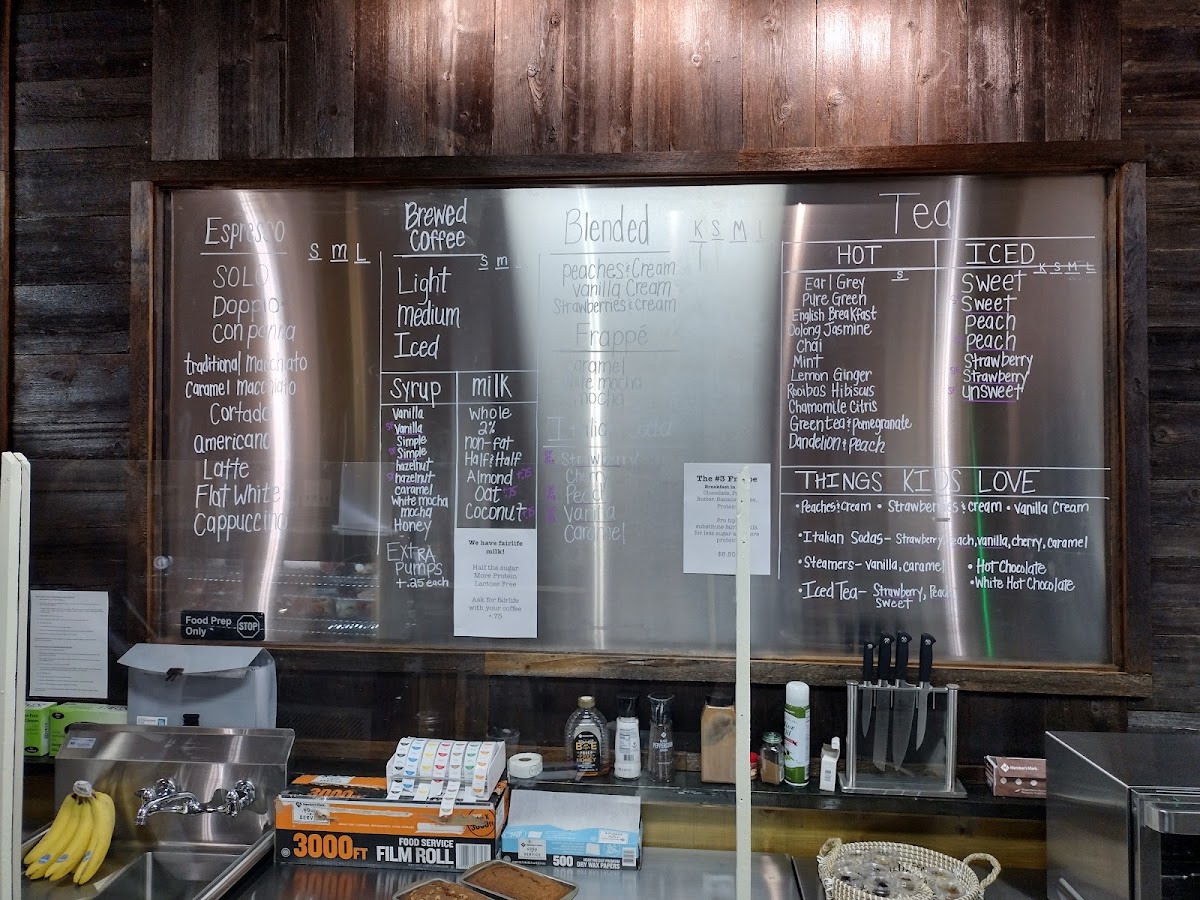 Espresso
S M L
SOLO
Doppio
con panna
traditional Macchiato
Caramel Macchiato
Cortado
Americano
Latte
Flat White
Cappuccino
Brewed
Coffee
S M
Light
medium
Iced
Syrup
Vanilla
Vanilla
Simple
Simple
hazelnut
hazelnut
caramel
White mocha
mocha
Honey
Extra
Pumps
+.25 each
milk
Whole
2%
non-fat
Half & Half
Almond +.75
Oat +.75
Coconut +.75
We have fairlife
milk!
Half the sugar
More Protein
Lactose Free
Ask for fairlife
with your coffee
+.75
Blended
K S M L
T
peaches & Cream
vanilla Cream
Strawberries & cream
Frappé
caramel
white mocha
mocha
Italian Soda
Strawberry
Cherry
Peach
Vanilla
Caramel
The #3
Tea
HOT
S
Earl Grey
Pure Green
English Breakfast
Oolong Jasmine
Chai
Mint
Lemon Ginger
Rooibos Hibiscus
Chamomile Citris
Green tea & Pomegranate
Dandelion & Peach
ICED
K S M L
Sweet
Sweet
Peach
Peach
Strawberry
Strawberry
unsweet
THINGS KIDS LOVE
• Peaches & cream • Strawberries & cream • Vanilla Cream
• Italian Sodas - Strawberry, peach, vanilla, cherry, caramel
• Steamers - vanilla, caramel • Hot Chocolate
• White Hot Chocolate
• Iced Tea - Strawberry, Peach
Sweet
Food Prep
Only
STOP
3000FT
FOOD SERVICE
FILM ROLL
500
DRY WAX PAPERS